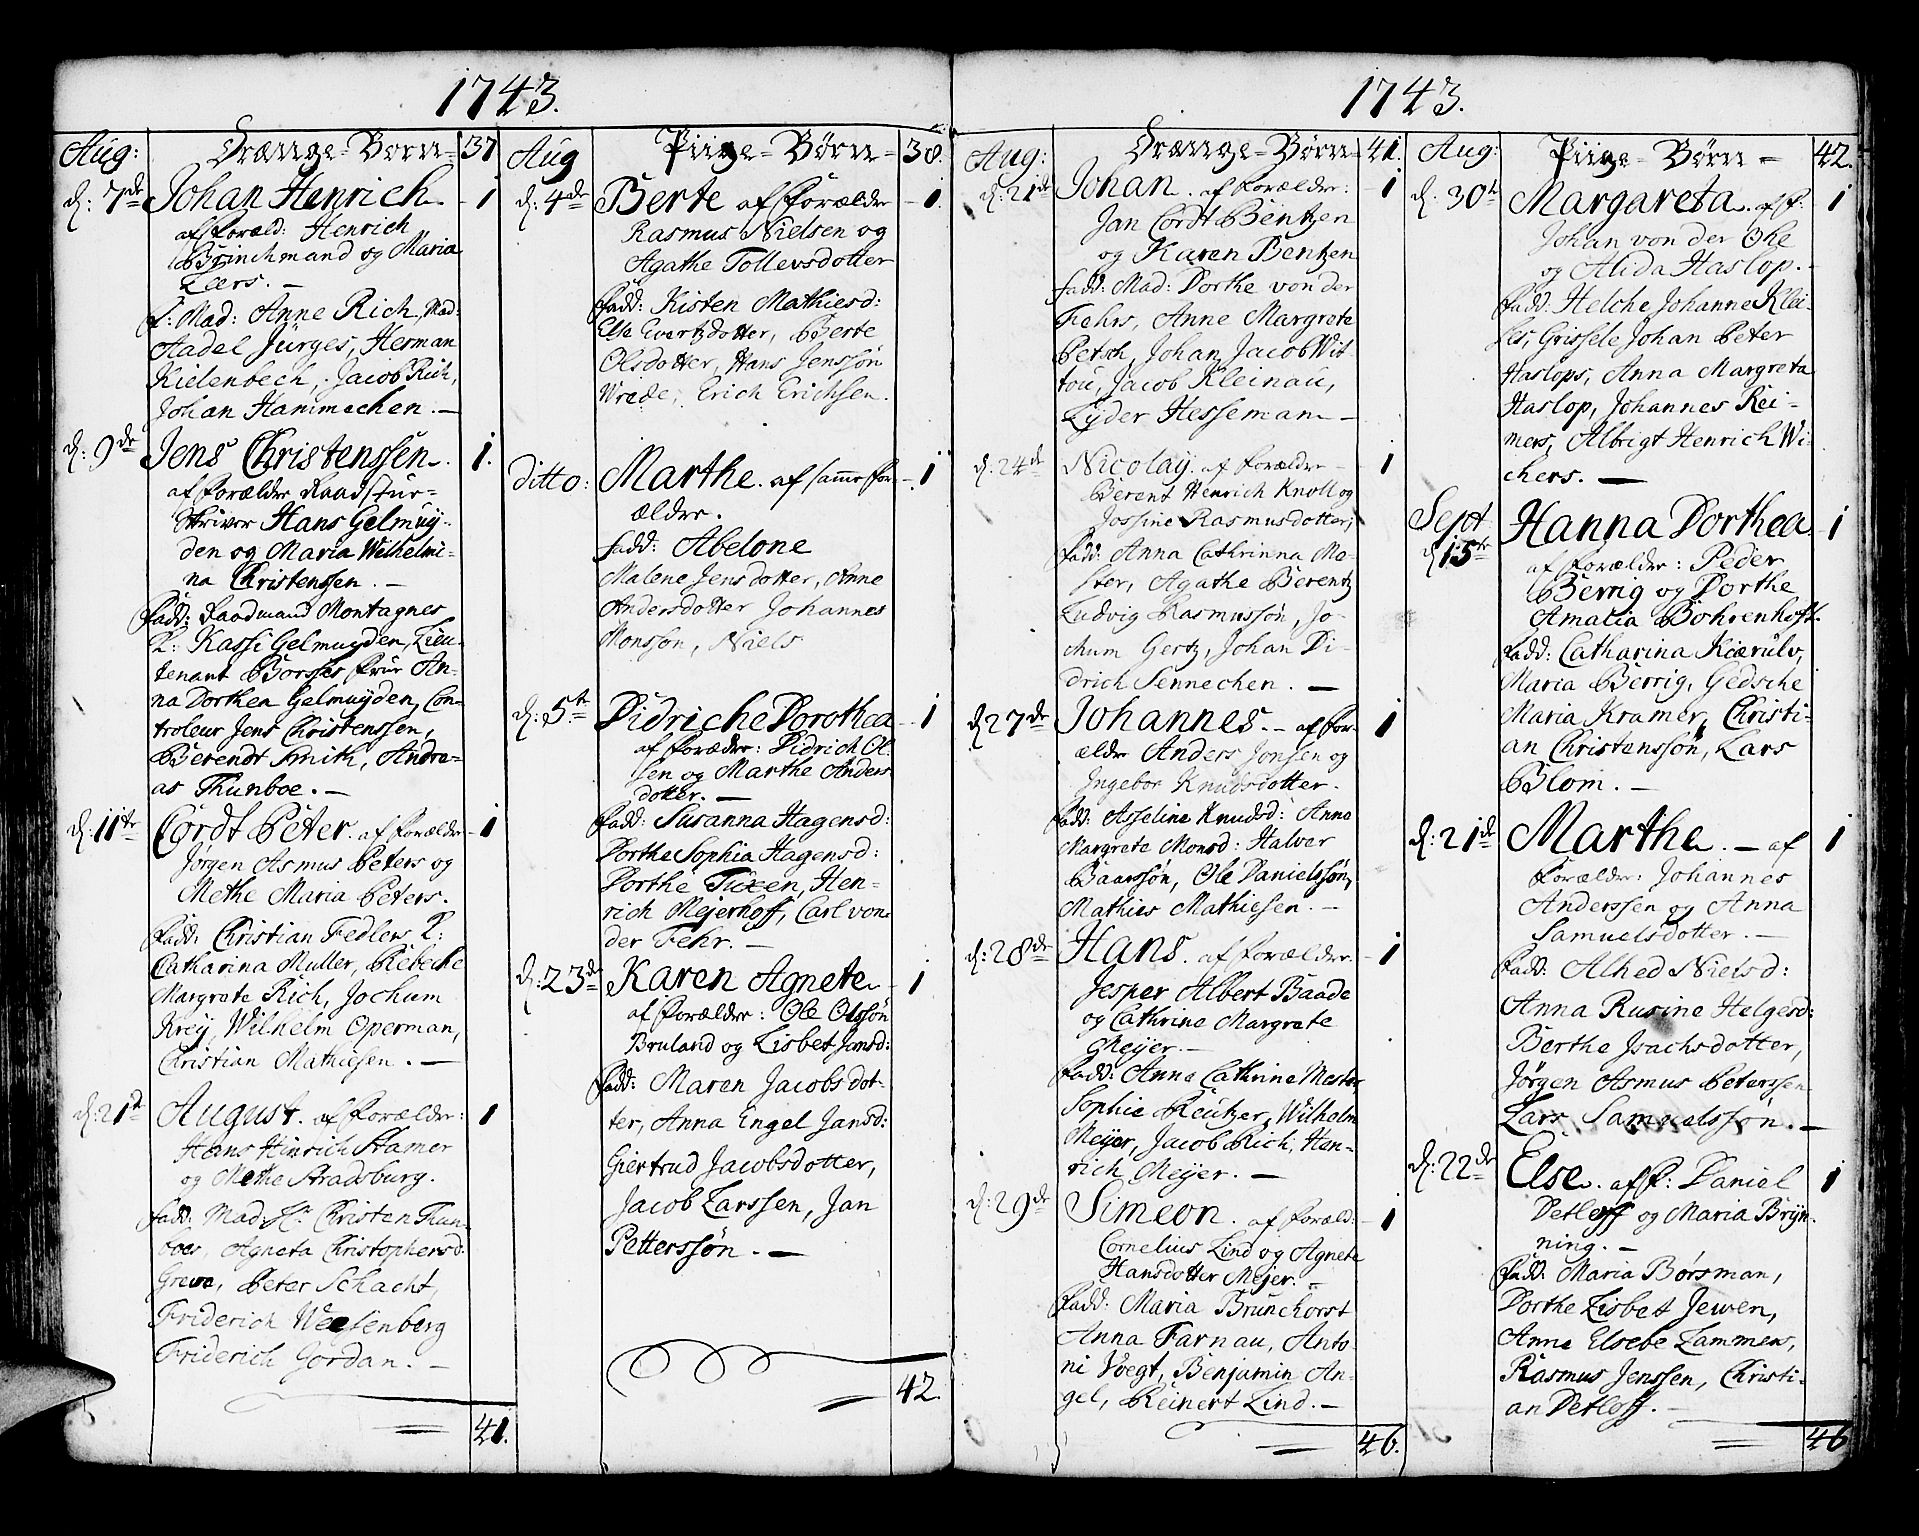 1743.
Aug:
Drænge-Børn
37
d: 7de
Johan Henrich
1
af foræld: Henrich
Brinchmand og Maria
Lærs. —
f: Mad: Anne Rich, Mad:
Aadel Jürges, Herman
Kielenbech, Jacob Rich,
Johan Hammechen. —
d: 9de
Jens Christenssen
1.
af forældre Raadstur-
Skriver Hans Gelmuy-
den og Maria Wilhelmi-
na Christenssen. —
fadd: Raadmand Montagnes
K: Kassi Gelmuyden, Lieu-
tenant Borsses frur An-
na Dorthea Gelmuyden, Con-
troleur Jens Christenssen,
Berendt Smith, Andre-
as Thunboe. —
d: 11te
Cordt Peter. af forældre
1
Jørgen Asmus Peters og
Methe Maria Peters.
fadd: Christian Fedlers K:
Catharina Muller, Rebeche
Margrete Rich, Jochum
Kreÿ, Wilhelm Operman,
Christian Mathiesen. —
d: 21d
August. af forældre:
1
Hans Hinrich Stamer
og Methe Stradsburg.
fadd: Mad Sr: Christen Thun-
boes, Agneta Christophersd:
Greve, Peter Schacht,
Friderich Weesenberg
Friderich Jordan. —
41.
Aug
Piige-Børn
38.
d: 4de
Berte af forældre
1.
Rasmus Nielsen og
Agathe Tollevsdotter
fadd: Kisten Mathiesd:
Else Evertzdotter, Berte
Olsdotter, Hans Jenssøn
Wrede, Erich Erichsen.
ditto:
Marthe. af samme for-
1
ældre.
fadd: Abelone
Malene Jensdotter, Anne
Andersdotter Johannes
Monssøn, Niels
d: 5te
Didriche Dorothea
1
af forældre: Didrich Ol
sen og Marthe Anders
dotter. —
fadd: Susanna Hagensd:
Dorthe Sophia Hagensd:
Dorthe Tuxen, Hen-
rich Mejerhoff, Carl von
der Fehr. —
d: 23de
Karen Agnete
1
af forældre: Ole Olssøn
Bruland og Lisbet Jonsd:
fadd: Maren Jacobsdot-
ter, Anna Engel Jansd:
Giertrud Jacobsdotter,
Jacob Larssen, Jan
Petterssøn. —
42.
1743.
Aug:
Drænge-Børn
41.
d: 21de
Johan. af forældre:
1
Jan Cordt Bentzen
og Karen Bentzen
fadd: Mad: Dorthe von der
Fehrs, Anne Margrete
Petsch, Johan Jacob Wit-
tou, Jacob Kleinau,
Lyder Hesseman —
d: 24de
Nicolaÿ. af forældre
1
Berent Henrich Knoll og
Jossine Rasmusdotter,
fadd: Anna Cathrinna Mo-
ster, Agathe Berentz
Ludvig Rasmussøn, Jo-
chum Gertz, Johan Di-
drich Sennechen. —
d: 27de
Johannes. — af for-
1
ældre Anders Jonsen og
Ingebor Knudsdotter.
fadd: Asseline Knudsd: Anne
Margrete Monsd: Halver
Baarssøn, Ole Danielssøn,
Mathies Mathiesen. —
d: 28de
Hans. af forældre.
1
Jesper Albert Baade
og Cathrine Margrete
Meÿer. —
fadd: Anne Cathrine Mester
Sophie Reutzer, Wilhelm
Meÿer, Jacob Rich, Hen-
rich Meÿer. —
d: 29de
Simeon. af foræld:
1
Cornelius Lind og Agnete
Hansdotter Mejer. —
fadd: Maria Brunchorst
Anna Farnau, Anto-
ni Voegt, Benjamin An-
gel, Reinert Lind. —
46.
Aug:
Piige-Børn
42.
d: 30te
Margareta. af f:
1
Johan von der Ohe
og Alida Haslop. —
fadd: Helche Johanne Klei-
ses, Grissele Johan Peter
Haslops, Anna Margreta
Haslop, Johannes Rei-
mers, Albrigt Henrich Wi-
chers. —
Sept
d 15te
Hanna Dorthea
1
af forældre: Peder
Berrig og Dorthe
Amalia Bohrenhoft.
fadd: Catharina Kiærulv,
Maria Berrig, Gedsche
Maria Kramer, Christi-
an Christenssøn, Lars
Blom. —
d: 21de
Marthe. — af
1
forældre: Johannes
Anderssen og Anna
Samuelsdotter. —
fadd: Alhed Nielsd:
Anna Rusine Helgesd:
Berthe Isachsdotter,
Jørgen Asmus Peterssen
Lars Samuelssøn. —
d: 22de
Else. af f: Daniel
1
Detleff og Maria Brÿn-
ning. —
fadd: Maria Børsman,
Dorthe Lisbet Jewen,
Anne Elsebe Lammers,
Rasmus Jenssen, Christi-
an Detloff. —
46